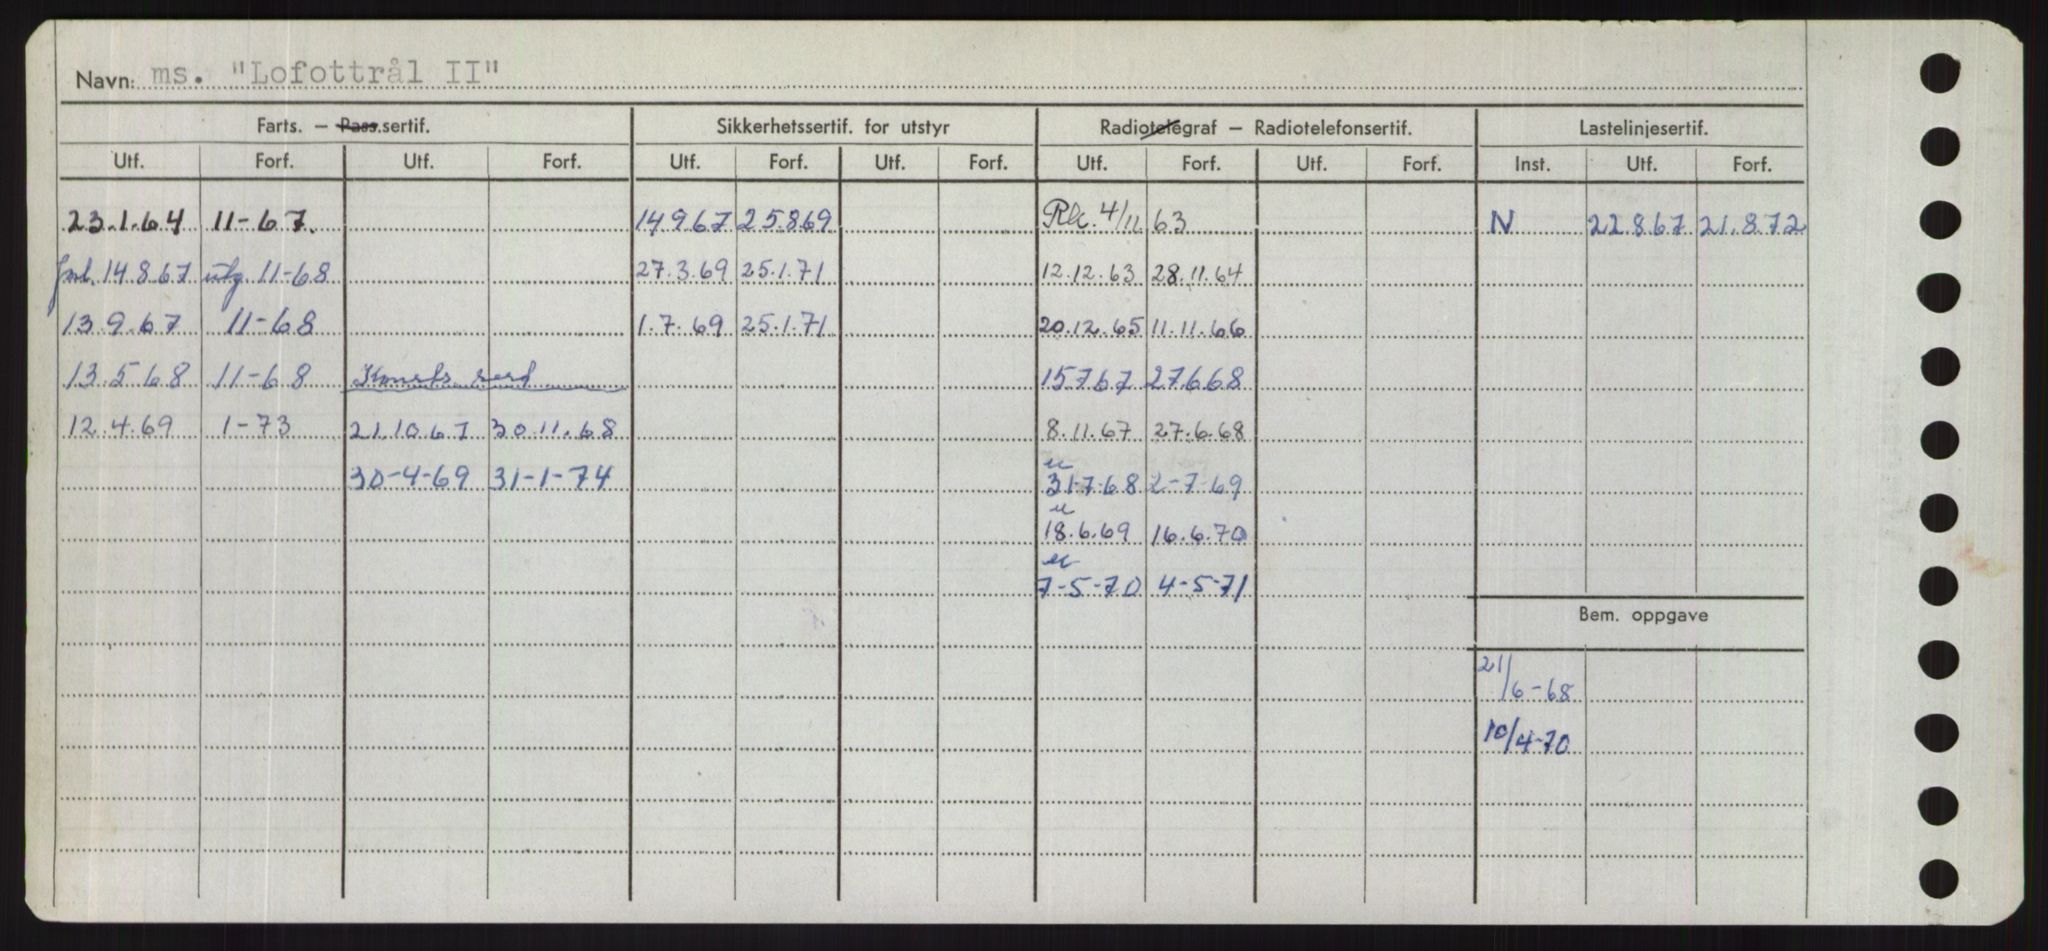 Navn: ms. "Lofottrål II"
Farts. — Pass.sertif. Sikkerhetssertif. for utstyr Radiotelegraf — Radiotelefonsertif. Lastelinjesertif.
Utf. Forf. Utf. Forf. Utf. Forf. Utf. Forf. Utf. Forf. Utf. Forf. Inst. Utf. Forf.
23.1.64 11-67. 14967 25869 Rk. 4/11 63 N 22867 21.872
14.8.67 utg. 11-68 27.3.69 25.1.71 12.12.63 28.11.64
13.9.67 11-68 1.7.69 25.1.71 20.12.65 11.11.66
13.5.68 11-68 15767 27668
12.4.69 1-73 21.10.67 30.11.68 8.11.67 27.6.68
30-4-69 31-1-74 u 31-7-68 2-7-69
u 18.6.69 16.6.70
u 7-5-70 4-5-71
Bem. oppgave
21/6-68
10/4-70